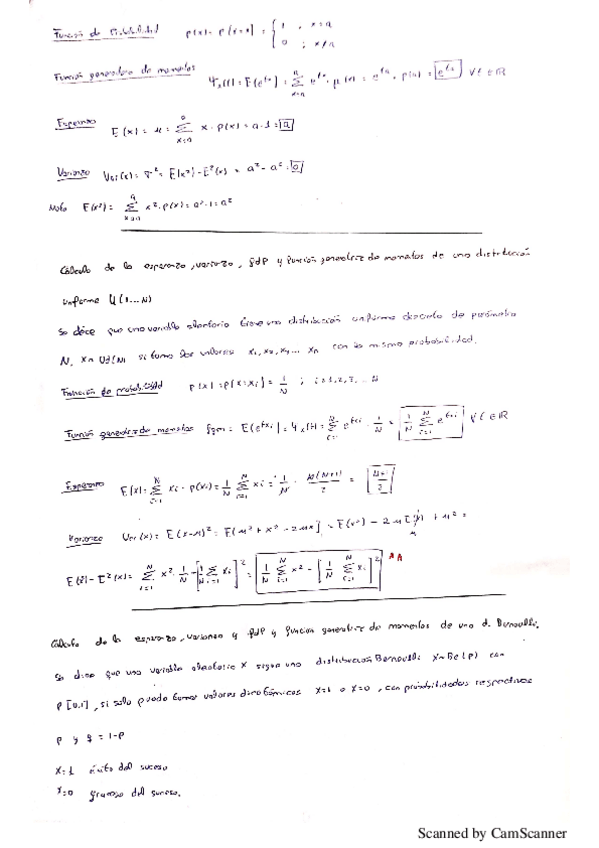 Función de Probabilidad p(x) = P(X=x) = { 1 , x=a
0 ; x≠a
Función generadora de momentos Ψx(t) = E(e^tx) = Σ e^tx · p(x) = e^ta · p(a) = e^ta ∀t∈R
Esperanza E(x) = μ = Σ x · p(x) = a · 1 = a
Varianza Var(x) = σ² = E(x²) - E²(x) = a² - a² = 0
Nota E(x²) = Σ x² · p(x) = a² · 1 = a²
Cálculo de la esperanza, varianza, fdp y función generatriz de momentos de una distribución
uniforme U(1...N)
Se dice que una variable aleatoria tiene una distribución uniforme discreta de parámetro
N, X ~ Ud(N) si toma los valores x1, x2, x3, ... xn con la misma probabilidad.
Función de probabilidad p(x) = P(X=xi) = 1/N ; i=1,2,3,... N
Función generatriz de momentos fgm = E(e^txi) = Ψx(t) = Σ e^txi · 1/N = 1/N Σ e^txi ∀t∈R
Esperanza E(x) = Σ xi · p(xi) = 1/N Σ xi = 1/N · N(N+1)/2 = N+1/2
Varianza Var(x) = E(x-μ)² = E[μ² + x² - 2μx] = E(x²) - 2μ + μ² =
E(x²) - E²(x) = Σ x² 1/N - [1/N Σ xi]² = 1/N Σ x² - [1/N Σ xi]²
Cálculo de la esperanza, varianza y fdp y función generatriz de momentos de una d. Bernoulli.
Se dice que una variable aleatoria X sigue una distribución Bernoulli X~Be(p) con
p [0,1], si solo puede tomar valores dicotómicos X=1 o X=0, con probabilidades respectivas
p y q = 1-p
X=1 éxito del suceso
X=0 fracaso del suceso.
Scanned by CamScanner